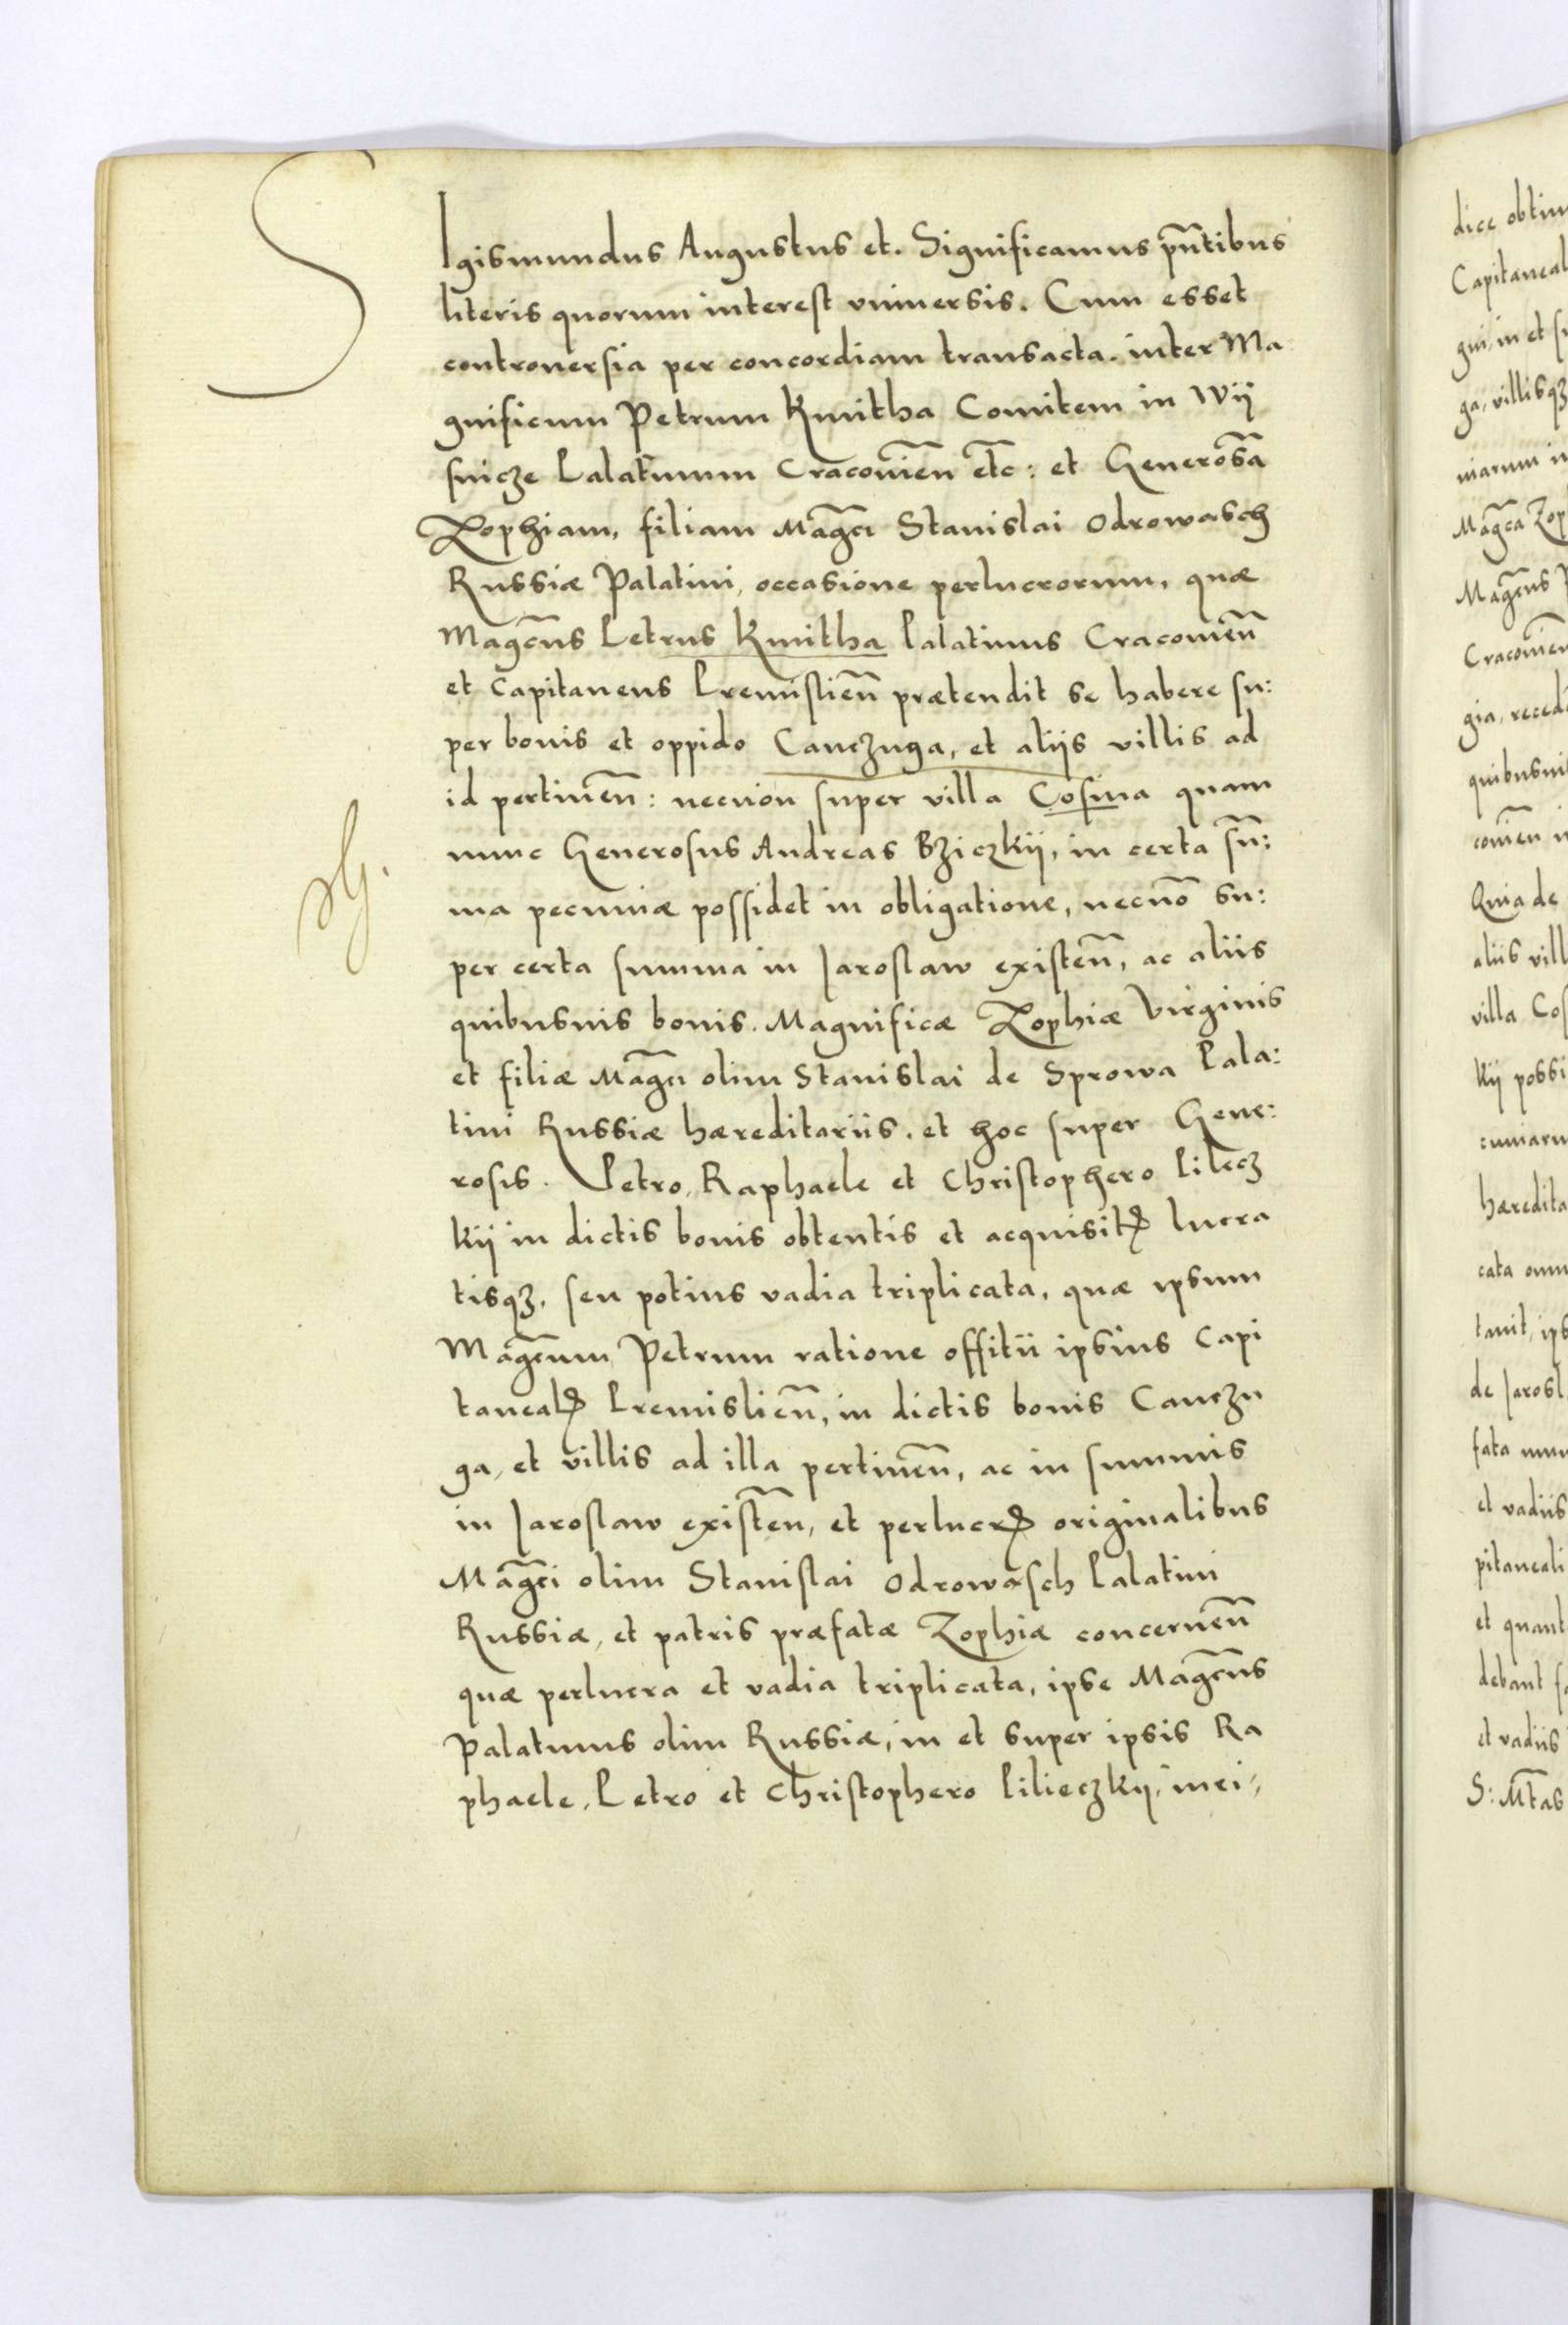 SIgismundus Augustus et. Significamus pn̄tibus
literis quorum interest vniuersis. Cum esset
controuersia per concordiam transacta. inter Ma
gnificum Petrum Kmitha Comitem in Wij
snicze Palatinum Cracovien̄ etc̄: et Generosā
Zophiam, filiam Mag̃ci Stanislai Odrowasch
Russiæ Palatini, occasione perlucrorum, quæ
Mag̃cus Petrus Kmitha Palatinus Cracouien̄
et Capitaneus Premislien̄ prætendit se habere su:
per bonis et oppido Canczuga, et aliis villis ad
id pertinen̄: necnon super villa Cosina quam
nunc Generosus Andreas Bziczkij, in certa sūm:
ma pecuniæ possidet in obligatione, necnō su:
per certa summa in Jaroslaw existen̄, ac aliis
quibusuis bonis. Magnificæ Zophiæ Virginis
et filiæ Mag̃ci olim Stanislai de Sprowa Pala:
tini Russiæ hæreditariis. et hoc super Gene:
rosis. Petro, Raphaele et Christophero Pilecz
kij in dictis bonis obtentis et acquisitꝭ lucra
tisqꝫ, seu potius vadia triplicata, quæ ipsum
Mag̃cum Petrum ratione offitii ipsius Capi
tanealꝭ Premislien̄, in dictis bonis Canczu
ga, et villis ad illa pertinen̄, ac in summis
in Jaroslaw existen̄, et perlucrꝭ originalibus
Mag̃ci olim Stanislai Odrowasch Palatini
Russiæ, et patris præfatæ Zophiæ concernen̄
quæ perlucra et vadia triplicata, ipse Mag̃cus
Palatinus olim Russiæ, in et super ipsis Ra
phaele, Petro et Christophero Pilieczkij, iuri-
dice
Capitaneal
gui, in et
ga, villisqꝫ
niarum
Mag̃ca Zop
Mag̃cus
Cracovien
gia, reced
quibusui
couien
Quia de
aliis vill
villa Cos
kij possi
cuniaru
hæredita
cata omn
tauit, ips
de Jarosl
fata
et vadiis
pitaneali
et quant
debant
et vadiis
S: Mt̄as